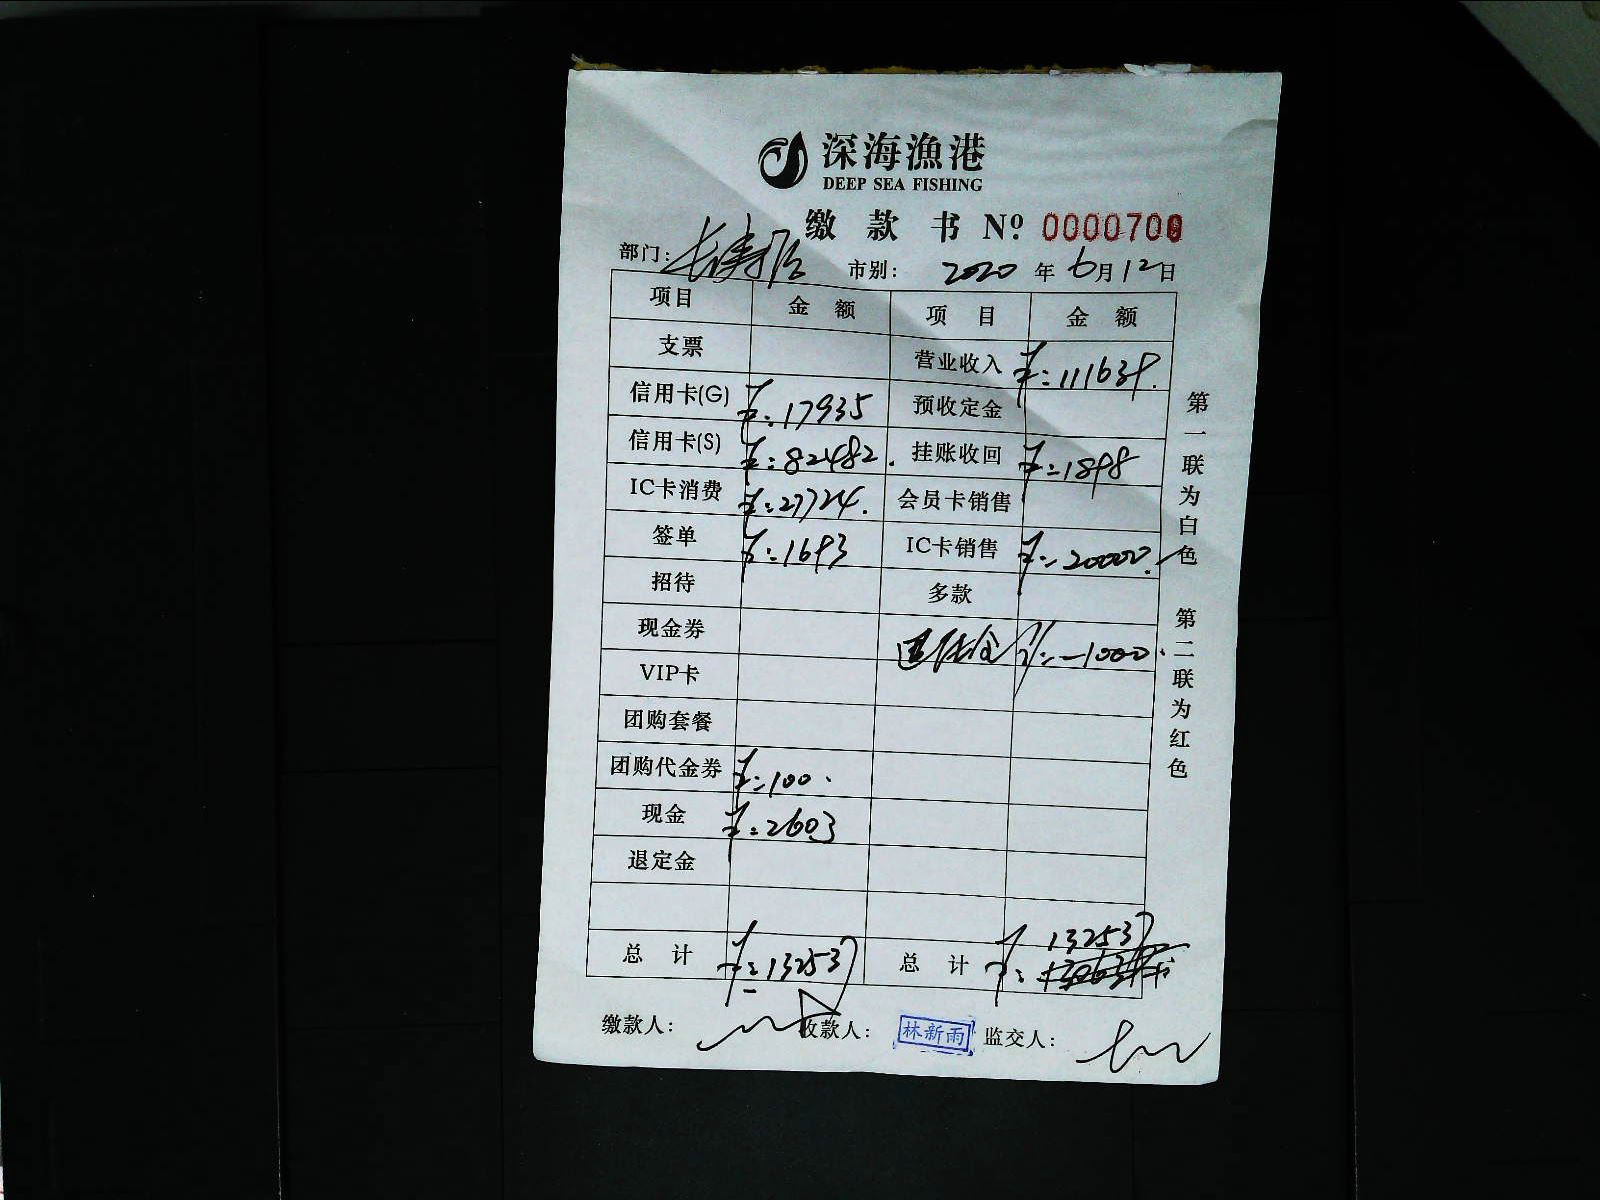 深海漁港
DEEP SEA FISHING
缴款书 Nº 0000700
部门： 市别： 2020年6月12日
项目 金额 项目 金额
支票 营业收入 ¥:111639.
信用卡(G) ¥:17935 预收定金
信用卡(S) ¥:82482. 挂账收回 ¥:1898
IC卡消费 ¥:27724. 会员卡销售
签单 ¥:1693 IC卡销售 ¥:20000.
招待 多款
现金券 ¥:-1000.
VIP卡
团购套餐
团购代金券 ¥:100.
现金 ¥:2603
退定金
总计 ¥:132537 总计 ¥: 132537
缴款人： 收款人： 林新雨 监交人：
第一联为白色 第二联为红色